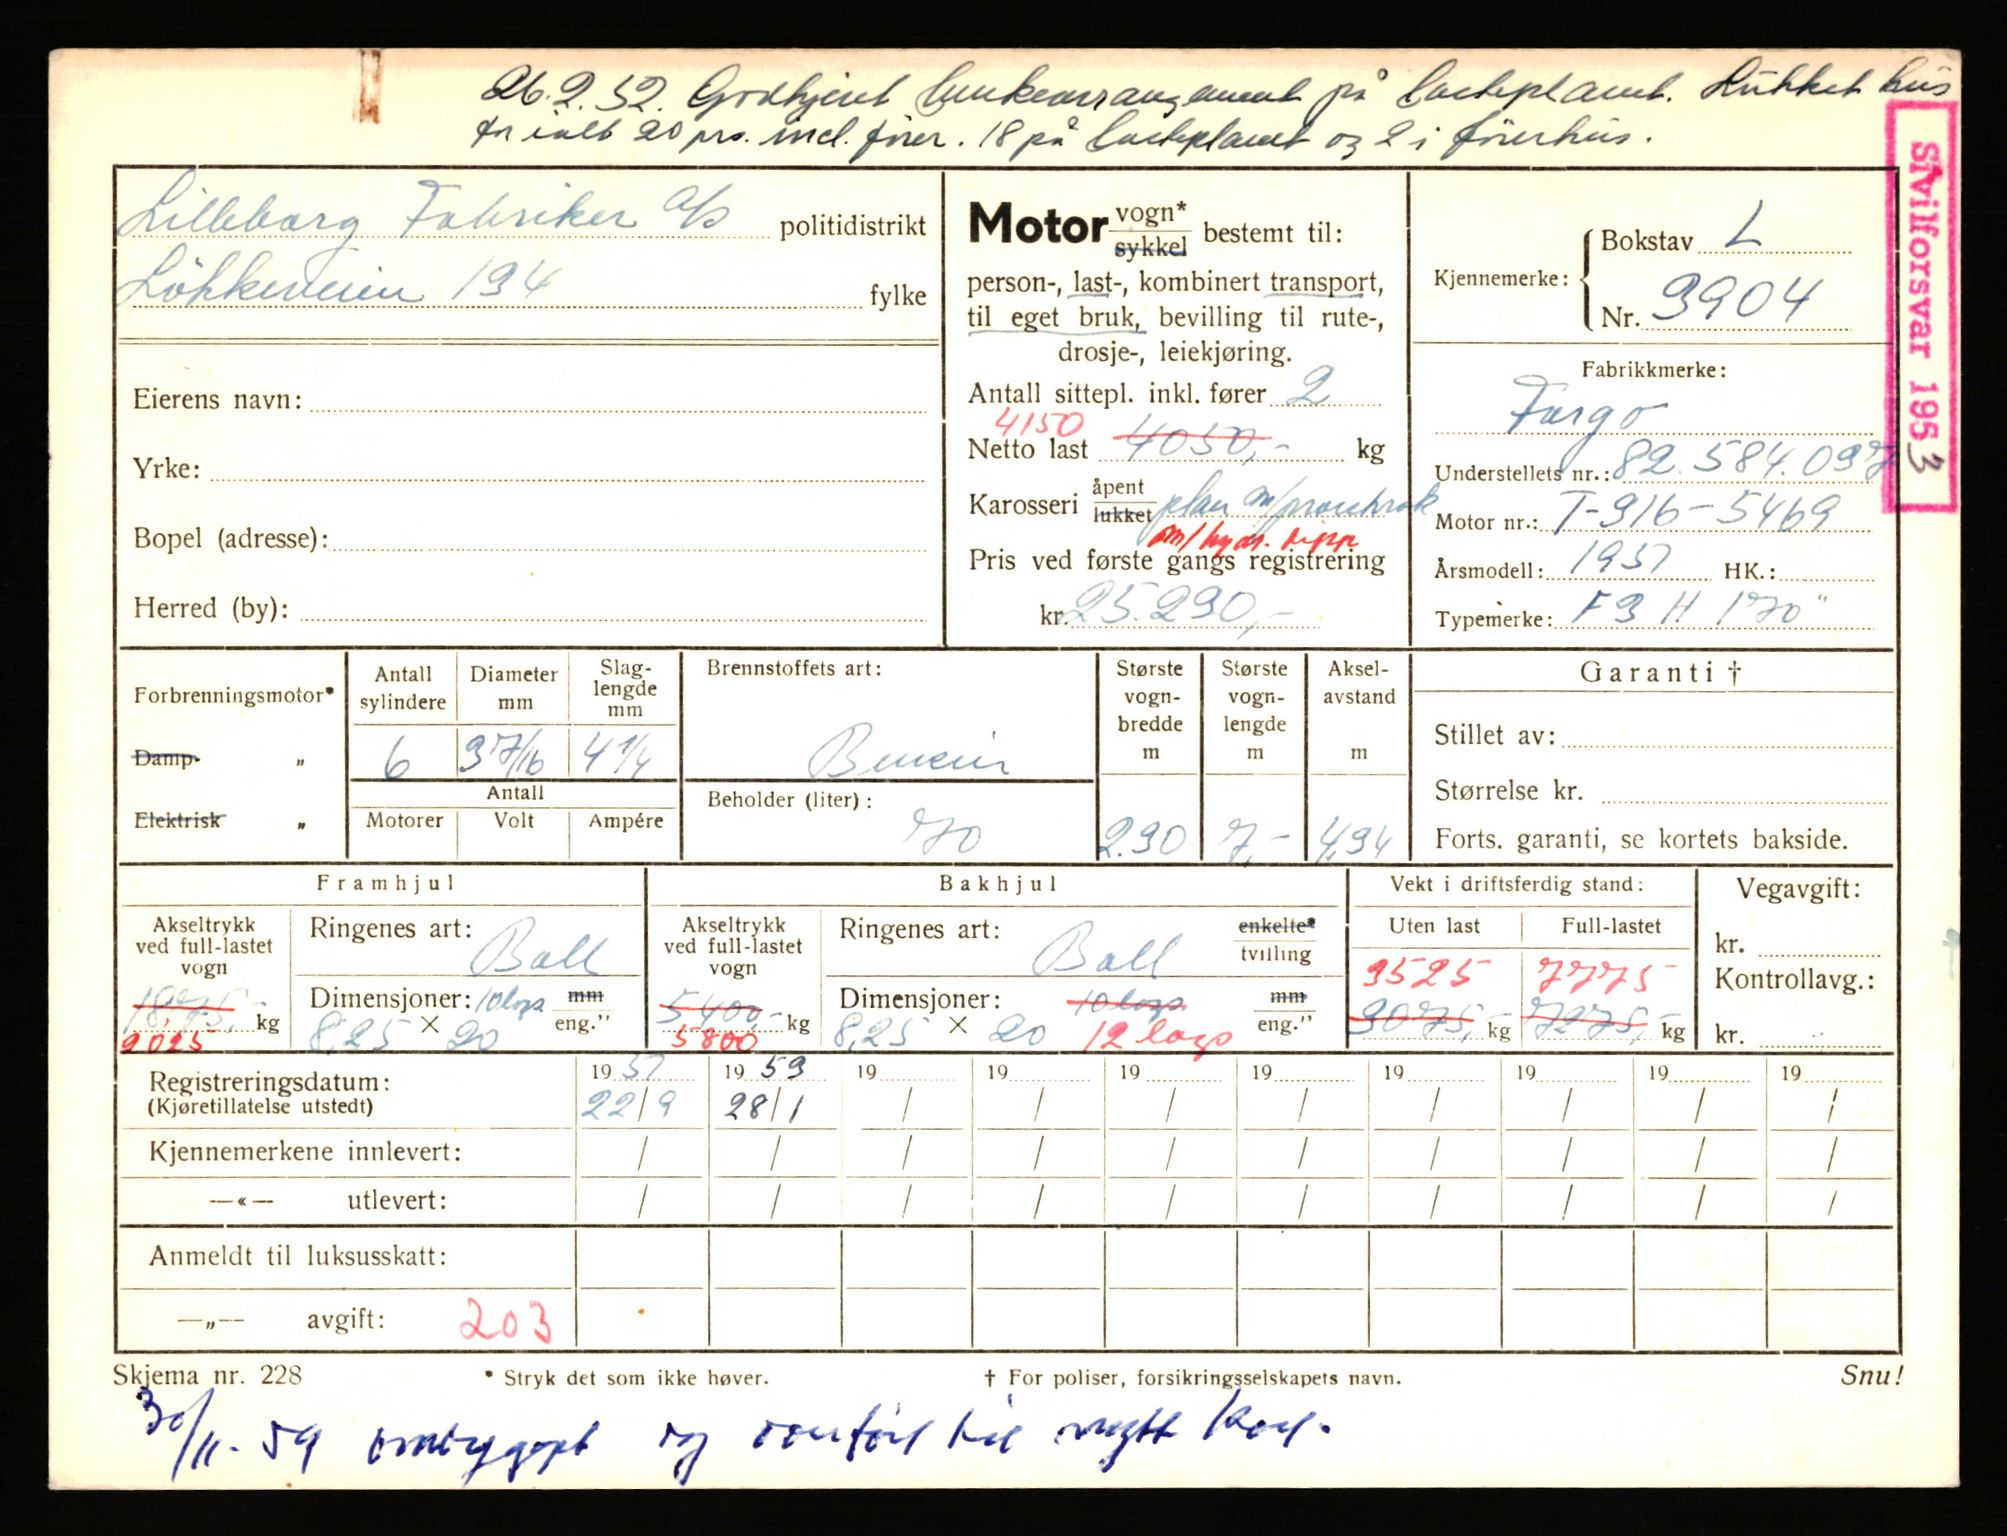 26.2.52. Godkjent benkearrangement på lasteplanet. Lukket hus
for ialt 20 prs. incl. fører. 18 på lasteplanet og 2 i førerhus.
Sivilforsvar 1953
Lilleborg Fabriker A/S politidistrikt
Løkkeveien 134 fylke
Eierens navn:
Yrke:
Bopel (adresse):
Herred (by):
Motor vogn* sykkel bestemt til:
person-, last-, kombinert transport,
til eget bruk, bevilling til rute-,
drosje-, leiekjøring.
Antall sittepl. inkl. fører 2
4150
Netto last 4050,- kg
Karosseri åpent lukket plan m/
m/hydr. tipp
Pris ved første gangs registrering
kr. 25.290,-
Kjennemerke: Bokstav L
Nr. 3904
Fabrikkmerke:
Fargo
Understellets nr.: 82.584.097
Motor nr.: T-316-5469
Årsmodell: 1951 HK.:
Typemerke: F3 H 170"
Forbrenningsmotor*
Damp- "
Elektrisk "
Antall sylindere
6
Diameter mm
3 7/16
Slaglengde mm
4 1/4
Antall
Motorer Volt Ampére
Brennstoffets art:
Bensin
Beholder (liter):
70
Største vogn-bredde m
2.30
Største vogn-lengde m
7,-
Aksel-avstand m
4,34
Garanti †
Stillet av:
Størrelse kr.
Forts. garanti, se kortets bakside.
Framhjul
Akseltrykk ved full-lastet vogn
1875,- kg
2025
Ringenes art: Ball
Dimensjoner: 10 lags mm
8,25 × 20 eng."
Bakhjul
Akseltrykk ved full-lastet vogn
5400,- kg
5800
Ringenes art: Ball enkelte* tvilling
Dimensjoner: 10 lags mm
8,25 × 20 12 lags eng."
Vekt i driftsferdig stand:
Uten last Full-lastet
3525 7775
3075,- kg 7275,- kg
Vegavgift:
kr.
Kontrollavg.:
kr.
Registreringsdatum: 1951 1953 19 19 19 19 19 19 19 19
(Kjøretillatelse utstedt) 22/9 28/1 / / / / / / / /
Kjennemerkene innlevert: / / / / / / / / / /
—«— utlevert: / / / / / / / / / /
Anmeldt til luksusskatt:
—„— avgift: 203
Skjema nr. 228 * Stryk det som ikke høver. † For poliser, forsikringsselskapets navn. Snu!
30/11-59 ombygget og overført til nytt kort.